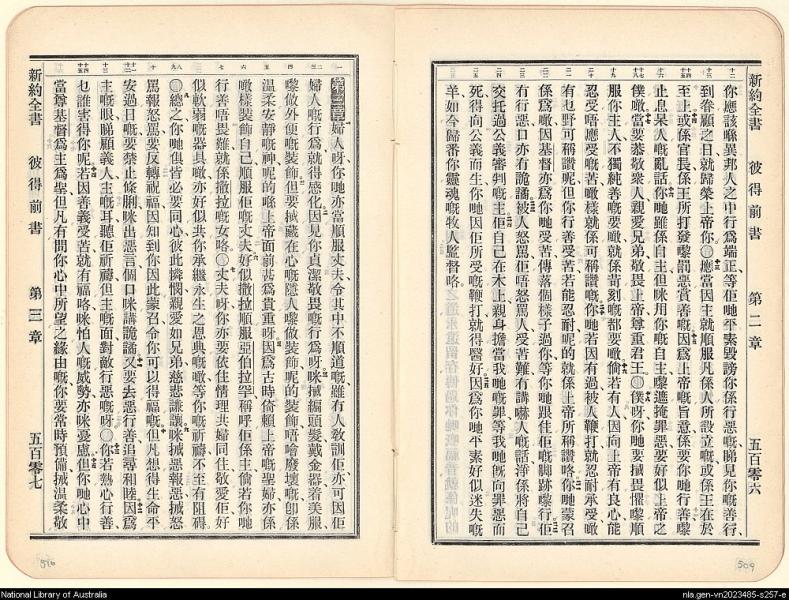 新約全書 彼得前書 第二章 五百零六
你應該喺異邦人之中行爲端正等佢哋平素毀謗你係行惡嘅睇見你嘅善行
到眷顧之日就歸榮上帝你〇應當因主就順服凡係人所設立嘅或係王在於
至上或係官長係王所打發嚟罰惡賞善嘅因爲上帝嘅旨意係要你哋行善嚟
止息呆人嘅亂話你哋雖係自主但咪用你嘅自主嚟遮掩罪惡要好似上帝之
僕噉當要恭敬衆人親愛兄弟敬畏上帝尊重君王〇僕呀你哋要搣畏懼嚟順
服你主人不獨純善嘅要噉就係苛刻嘅都要噉倘若有人因向上帝有良心能
忍受唔應受嘅苦噉樣就係可稱讚嘅你哋若因有過被人鞭打就忍耐承受噉
有乜野可稱讚呢但你行善受苦若能忍耐呢的就係上帝所稱讚咯你哋蒙召
係爲噉因基督亦爲你哋受苦傳落個樣子過你等你哋跟住佢嘅脚跡嚟行佢
有行惡口亦有詭譎被人怒駡佢唔怒駡人受苦難冇講嚇人嘅話淨係將自己
交托過公義審判嘅主佢自己在木上親身擔當我哋嘅罪等我哋旣向罪惡而
死得向公義而生你哋因佢所受嘅鞭打就得醫好因爲你哋平素好似迷失嘅
羊如今歸番你靈魂嘅牧人監督咯
第三章婦人呀你哋亦當順服丈夫令其中不順道嘅雖有人敎訓佢亦可因佢
婦人嘅行爲就得感化因見你貞潔敬畏嘅行爲呀咪搣編頭髮戴金器着美服
嚟做外便嘅裝飾但要搣藏在心嘅隱人嚟做裝飾呢的裝飾唔噲廢壞嘅卽係
温柔安靜嘅神呢的喺上帝面前甚爲貴重呀因爲古時倚賴上帝嘅聖婦亦係
噉樣裝飾自己順服佢嘅丈夫好似撒拉順服亞伯拉罕稱呼佢係主倘若你哋
行善唔畏難就係撒拉嘅女咯〇丈夫呀你亦要依住情理共婦同住敬愛佢好
似軟弱嘅器具噉亦好似共你承繼永生之恩典嘅噉等你嘅祈禱不至有阻碍
〇總之你哋俱皆必要同心彼此憐憫親愛如兄弟慈悲謙讓咪搣惡報惡搣怒
駡報怒駡要反轉祝福因知到你因此蒙召令你可以得福嘅但凡想得生命平
安過日嘅要禁止條脷咪出惡言個口咪講詭譎又要去惡行善追尋和睦因爲
主嘅眼睇顧義人主嘅耳聽佢祈禱但主嘅面對敵行惡嘅呀〇你若熱心行善
乜誰害得你呢若因善義受苦就有福咯咪怕人嘅威勢亦咪憂慮但你哋心中
當尊基督爲主爲聖但凡有問你心中所望之緣由嘅你要常時預備搣温柔敬
新約全書 彼得前書 第三章 五百零七
National Library of Australia
nla.gen-vn2023485-s257-e